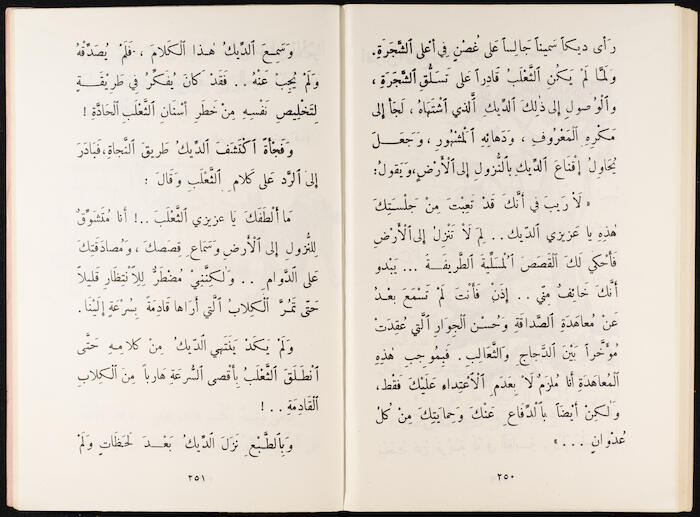 رَأَى دِيكاً سَمِيناً جَالِساً عَلَى غُصْنٍ فِي أَعْلَى الشَّجَرَةِ.
وَلَمَّا لَمْ يَكُنِ الثَّعْلَبُ قَادِراً عَلَى تَسَلُّقِ الشَّجَرَةِ ،
وَالْوُصُولِ إِلَى ذٰلِكَ الدِّيكِ الَّذِي اشْتَهَاهُ ، لَجَأَ إِلَى
مَكْرِهِ الْمَعْرُوفِ ، وَدَهَائِهِ الْمَشْهُورِ ، وَجَعَلَ
يُحَاوِلُ إِقْنَاعَ الدِّيكِ بِالنُّزُولِ إِلَى الْأَرْضِ، وَيَقُولُ:
« لَا رَيْبَ فِي أَنَّكَ قَدْ تَعِبْتَ مِنْ جَلْسَتِكَ
هٰذِهِ يَا عَزِيزِي الدِّيكَ.. لِمَ لَا تَنْزِلُ إِلَى الْأَرْضِ
فَأَحْكِي لَكَ الْقَصَصَ الْمُسَلِّيَةَ الطَّرِيفَةَ ... يَبْدُو
أَنَّكَ خَائِفٌ مِنِّي .. إِذَنْ فَأَنْتَ لَمْ تَسْمَعْ بَعْدُ
عَنْ مُعَاهَدَةِ الصَّدَاقَةِ وَحُسْنِ الْجِوَارِ الَّتِي عُقِدَتْ
مُؤَخَّراً بَيْنَ الدَّجَاجِ وَالثَّعَالِبِ . فَبِمُوجَبِ هٰذِهِ
الْمُعَاهَدَةِ أَنَا مُلْزَمٌ لَا بِعَدَمِ الْاِعْتِدَاءِ عَلَيْكَ فَقَطْ،
وَلٰكِنْ أَيْضاً بِالدِّفَاعِ عَنْكَ وَحِمَايَتِكَ مِنْ كُلِّ
عُدْوَانٍ ...»
٢٥٠
وَسَمِعَ الدِّيكُ هٰذَا الْكَلَامَ ، فَلَمْ يُصَدِّقْهُ
وَلَمْ يُجِبْ عَنْهُ .. فَقَدْ كَانَ يُفَكِّرُ فِي طَرِيقَةٍ
لِتَخْلِيصِ نَفْسِهِ مِنْ خَطَرِ أَسْنَانِ الثَّعْلَبِ الْحَادَّةِ !
وَفَجْأَةً اكْتَشَفَ الدِّيكُ طَرِيقَ النَّجَاةِ، فَبَادَرَ
إِلَى الرَّدِّ عَلَى كَلَامِ الثَّعْلَبِ وَقَالَ :
مَا أَلْطَفَكَ يَا عَزِيزِي الثَّعْلَبَ ..! أَنَا مُتَشَوِّقٌ
لِلنُّزُولِ إِلَى الْأَرْضِ وَسَمَاعِ قِصَصِكَ ، وَمُصَادَقَتِكَ
عَلَى الدَّوَامِ .. وَلٰكِنَّنِي مُضْطَرٌّ لِلْاِنْتِظَارِ قَلِيلاً
حَتَّى تَمُرَّ الْكِلَابُ الَّتِي أَرَاهَا قَادِمَةً بِسُرْعَةٍ إِلَيْنَا.
وَلَمْ يَكَدْ يَنْتَهِي الدِّيكُ مِنْ كَلَامِهِ حَتَّى
انْطَلَقَ الثَّعْلَبُ بِأَقْصَى السُّرْعَةِ هَارِباً مِنَ الْكِلَابِ
الْقَادِمَةِ ..!
وَبِالطَّبْعِ نَزَلَ الدِّيكُ بَعْدَ لَحَظَاتٍ وَلَمْ
٢٥١